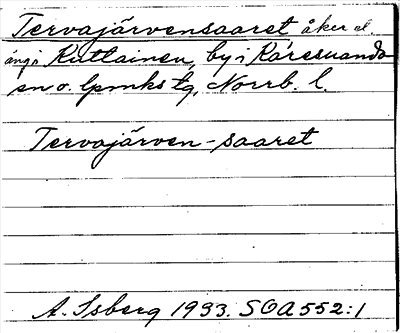 Tervajärvensaaret åker el.
äng i Kuttainen, by i Karesuando
sn o. lpmks tg, Norrb. l.
Tervajärven-saaret
A. Isberg 1933. SOA 552:1